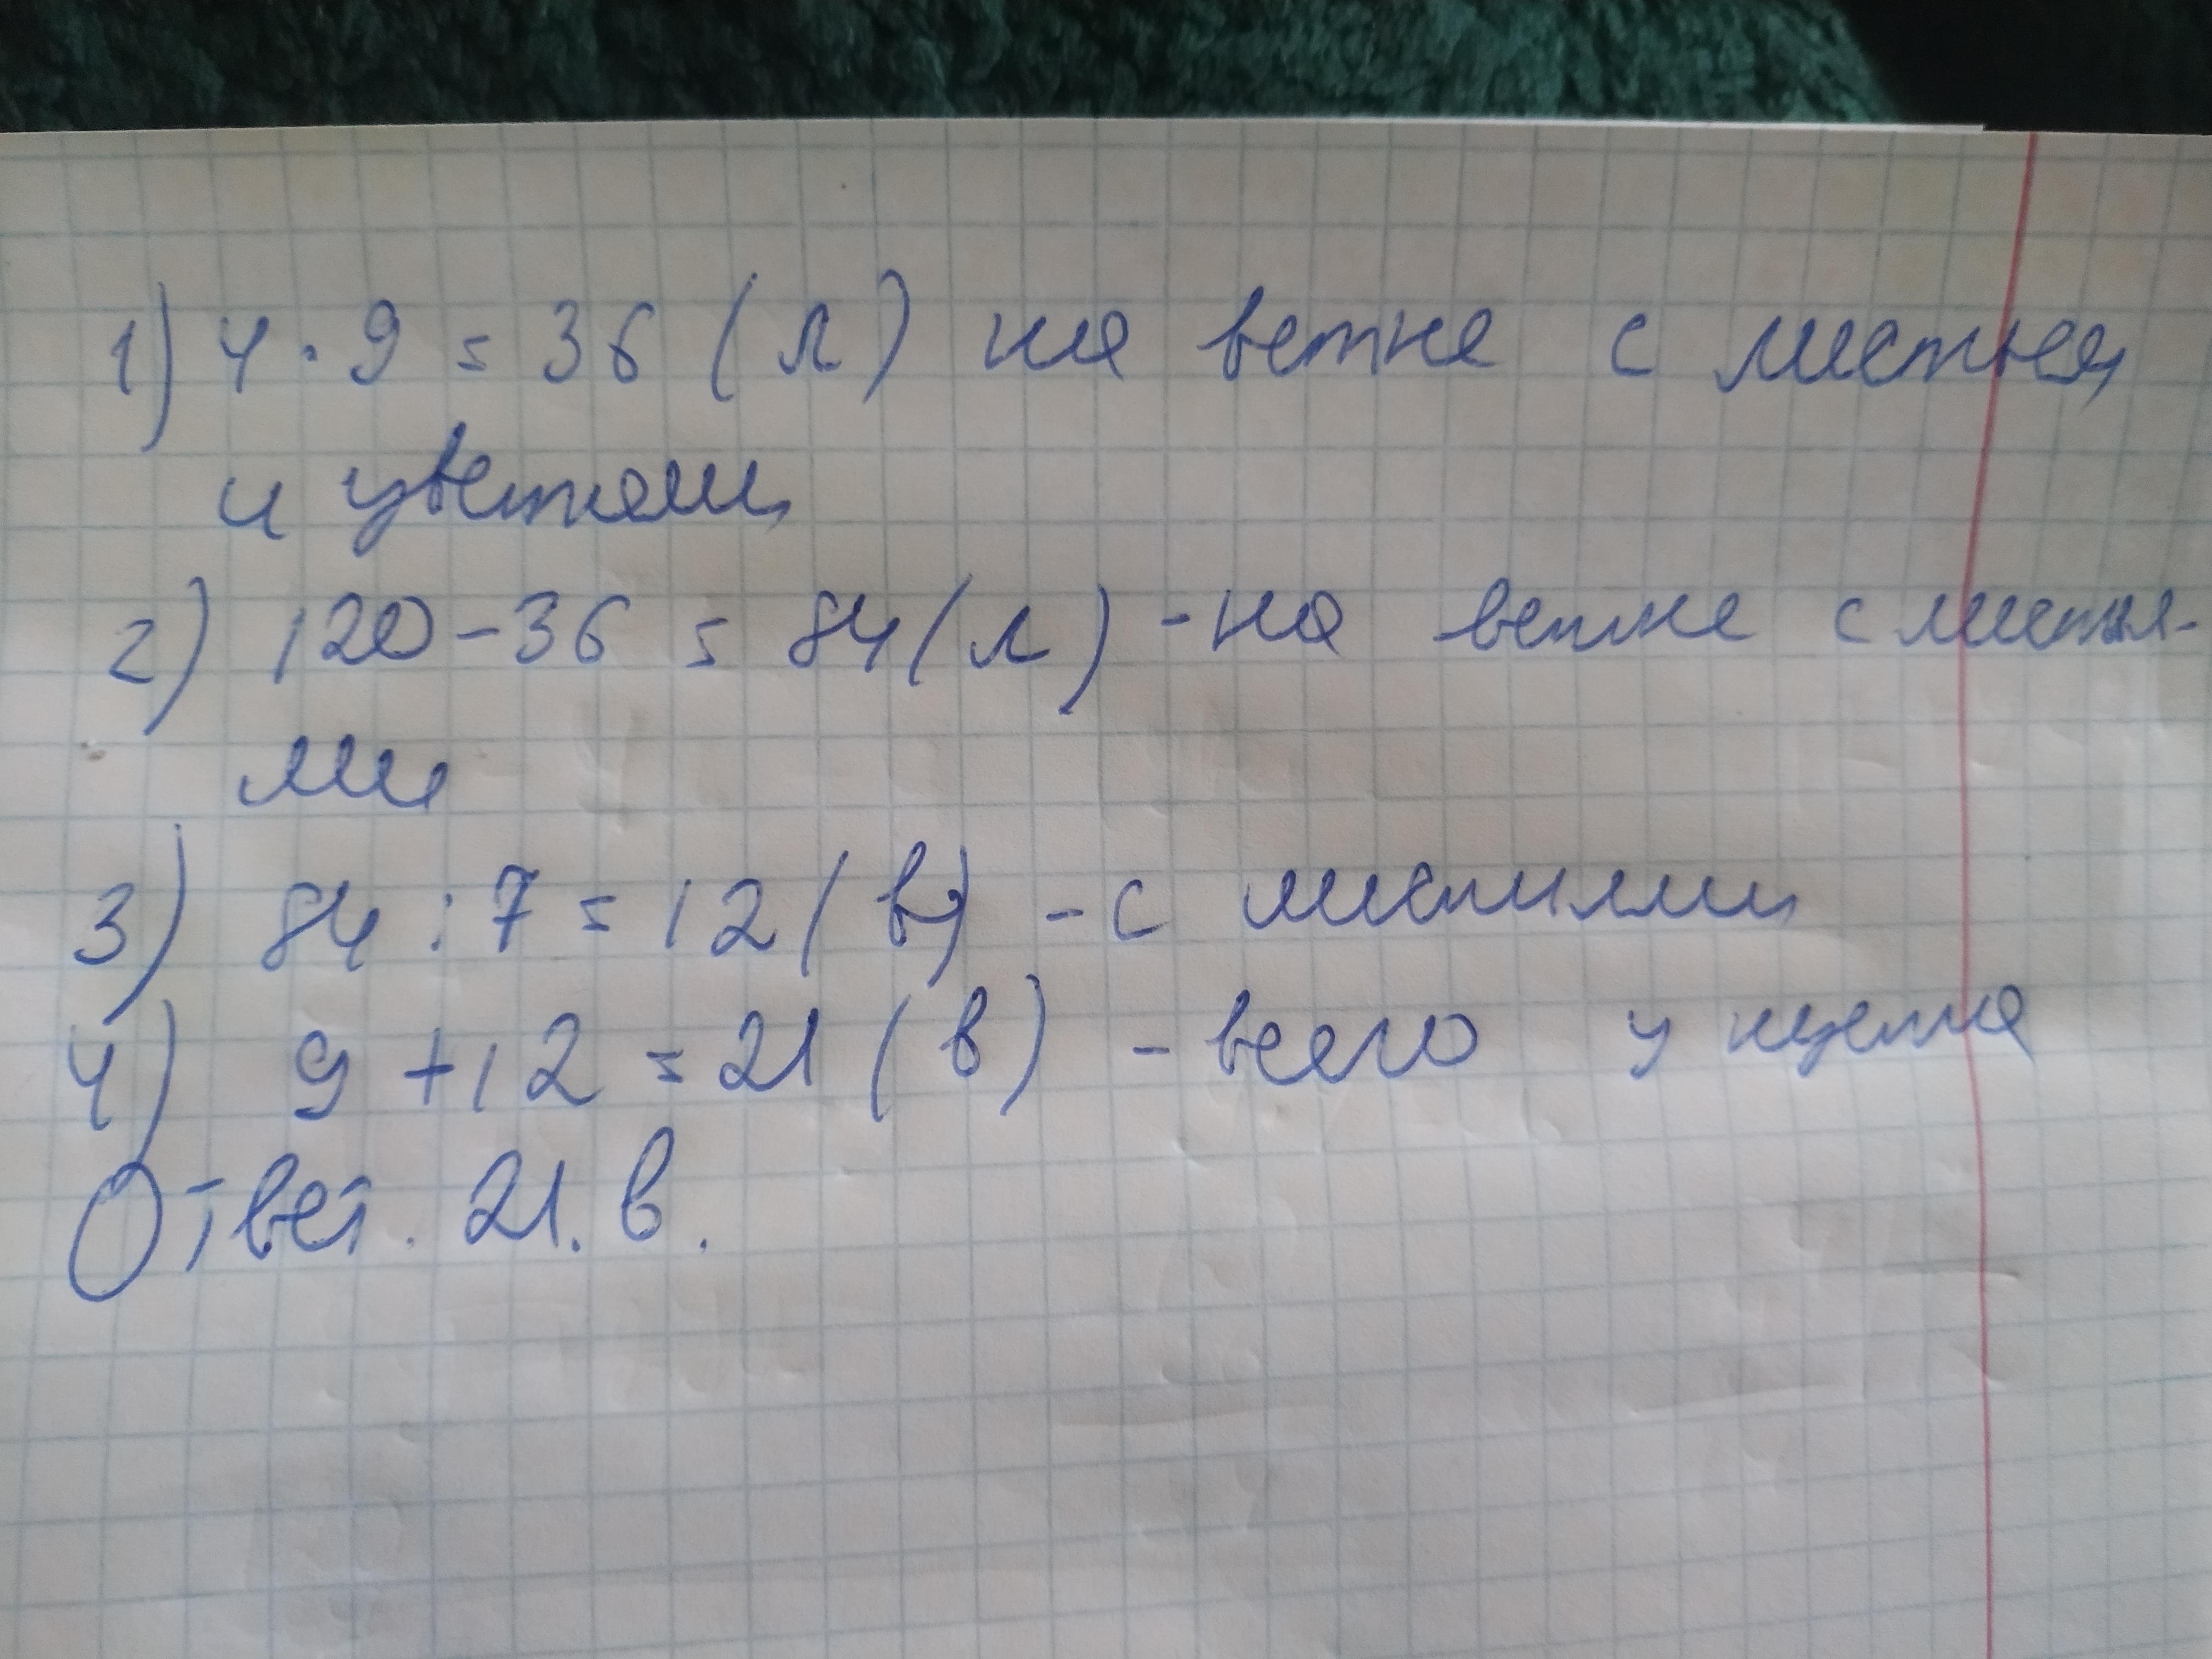 1) 4 · 9 = 36 (л) на ветке с листья
и цветами
2) 120 - 36 = 84 (л) - на ветке с листья-
ми
3) 84 : 7 = 12 (в) - с листьями
4) 9 + 12 = 21 (в) - всего у куста
Ответ. 21. в.